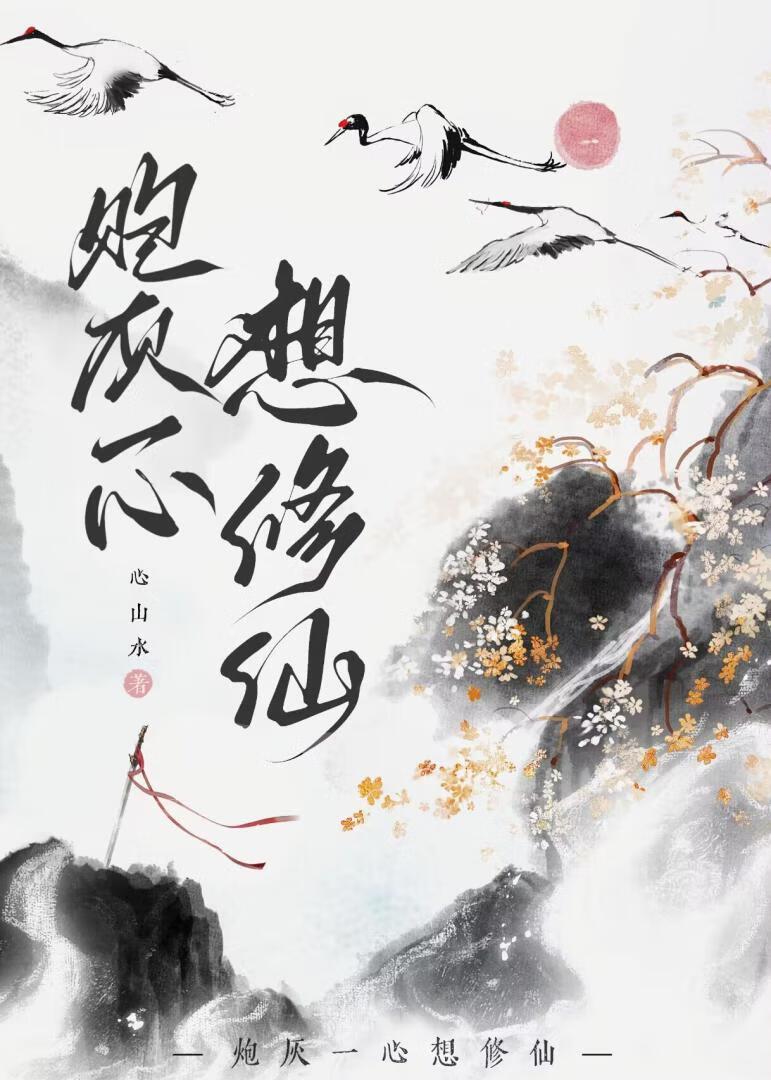 炮灰一心
想修仙
心山水
著
— 炮灰一心想修仙 —